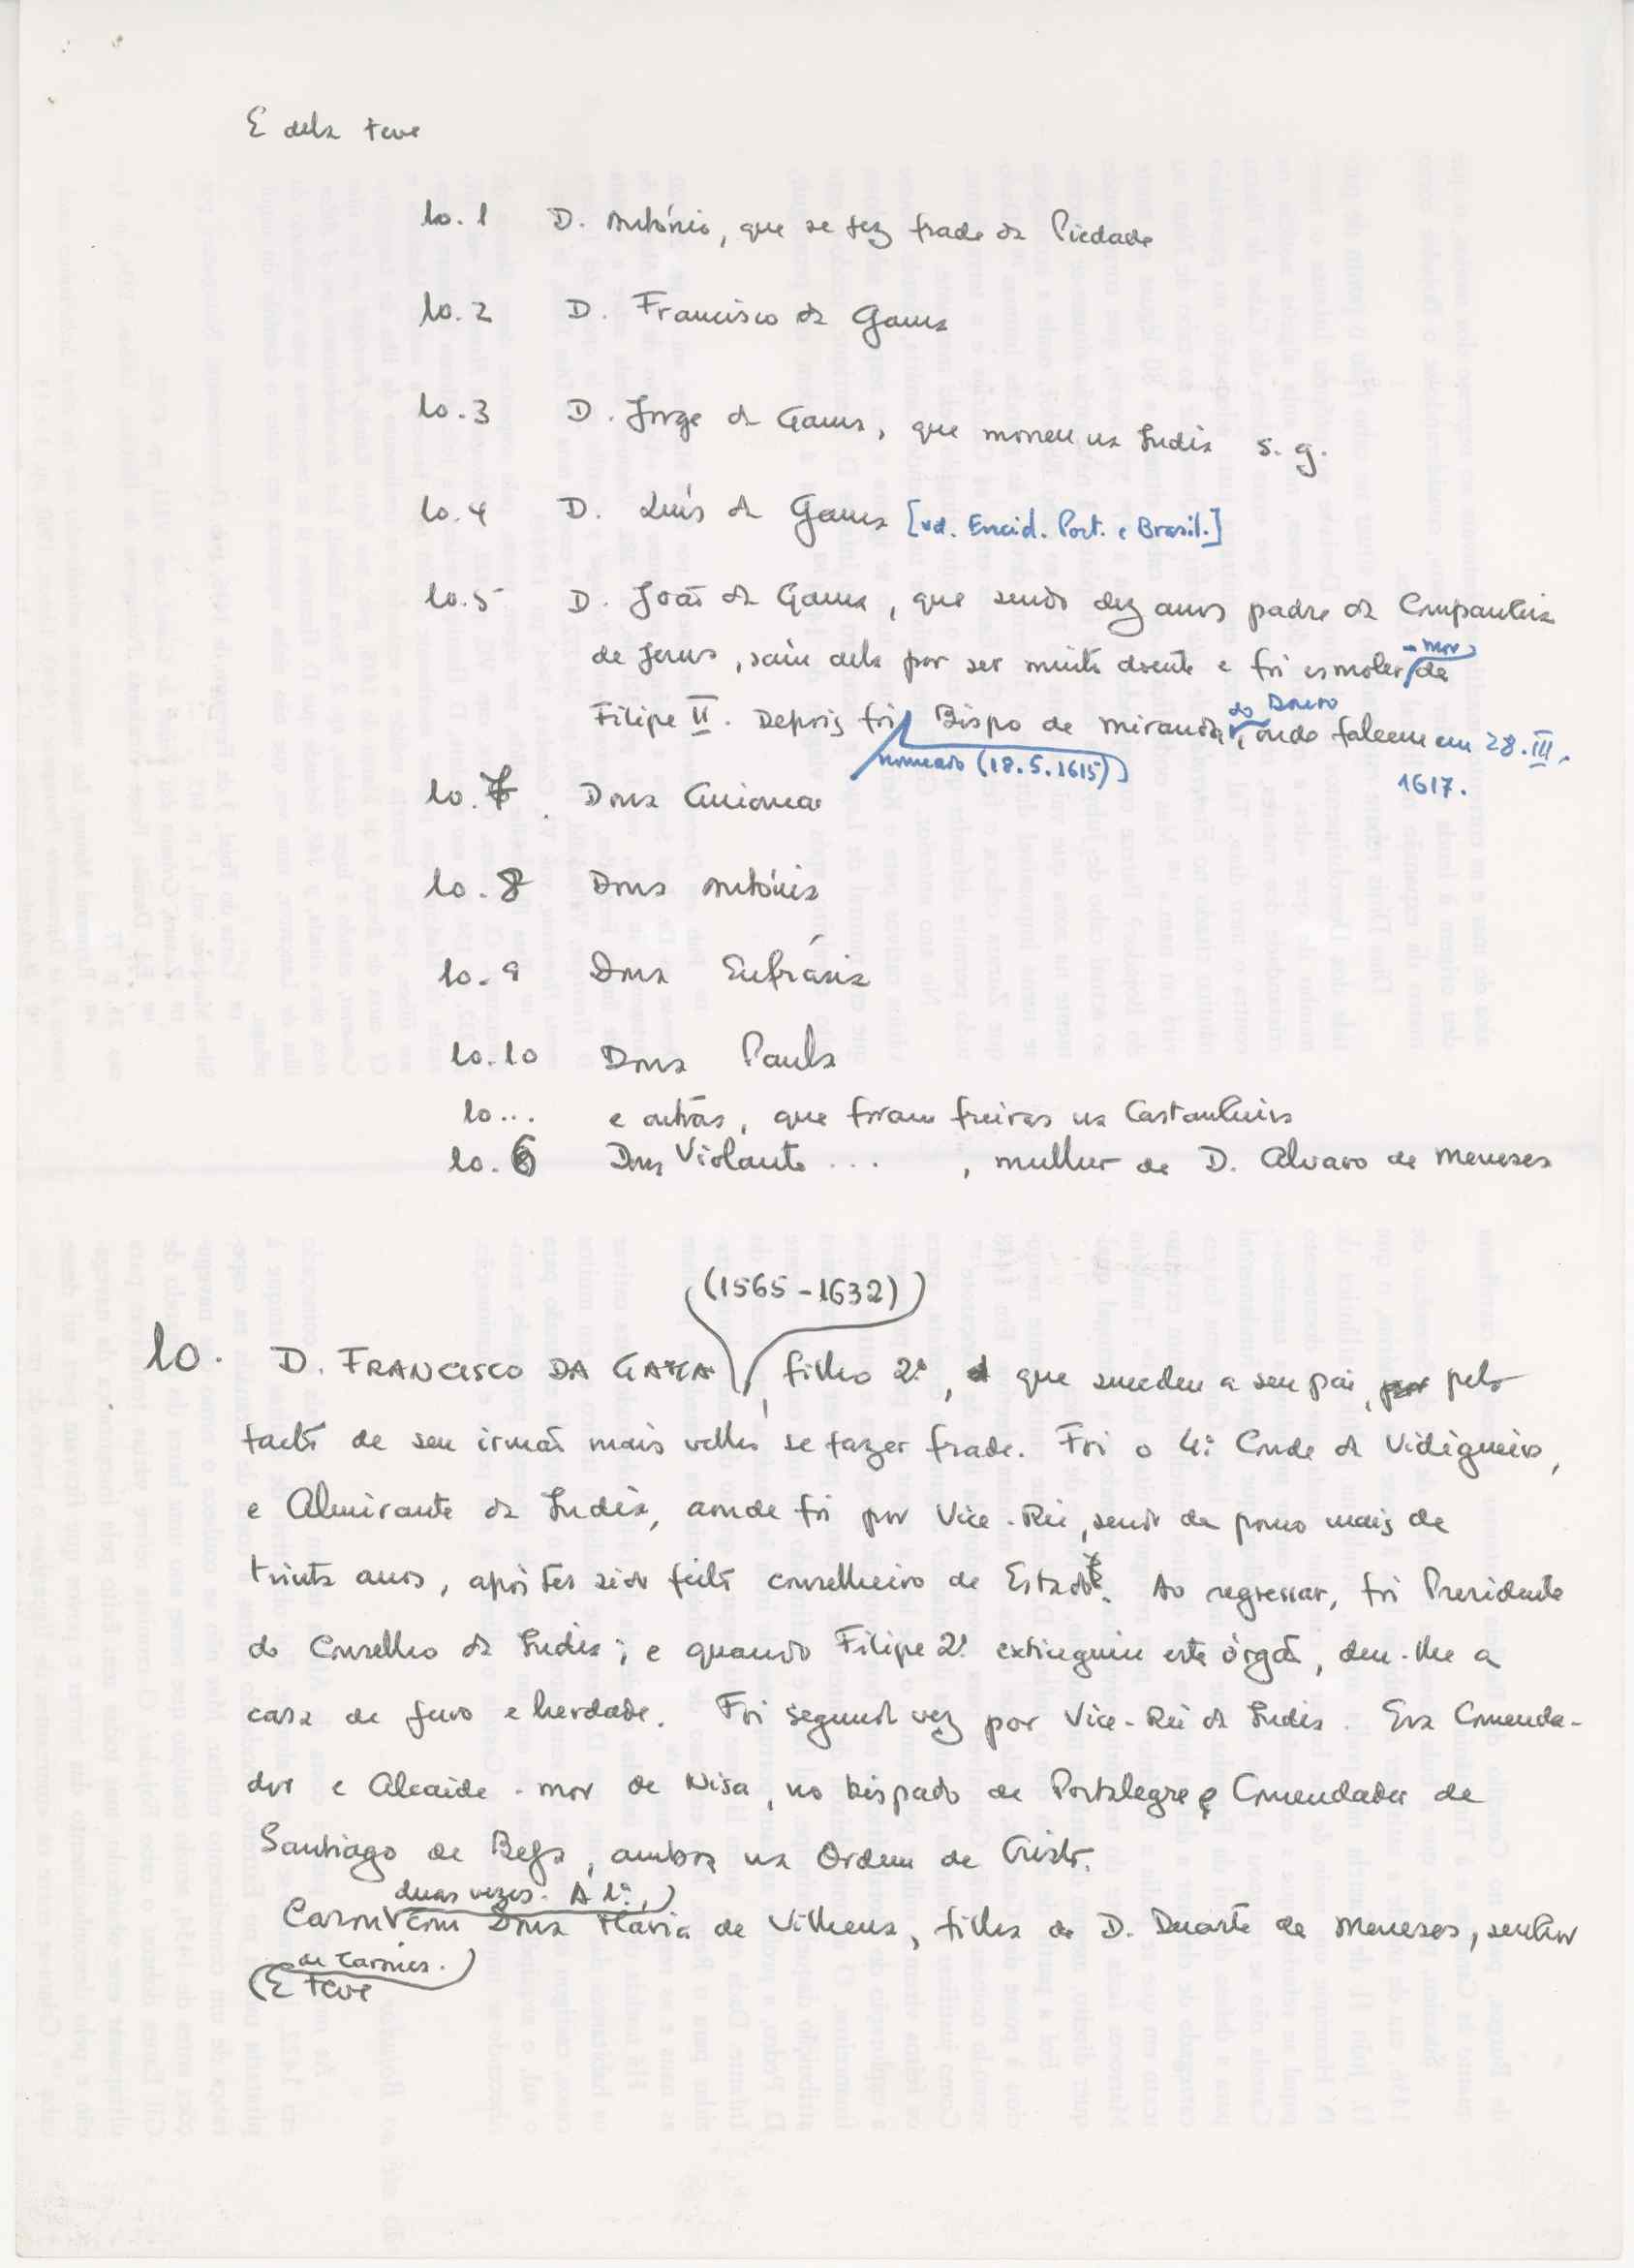 E dela teve
10.1 D. António, que se fez frade da Piedade
10.2 D. Francisco da Gama
10.3 D. Jorge da Gama, que morreu na India s. g.
10.4 D. Luís da Gama [vd. Encicl. Port. e Brasil.]
10.5 D. João da Gama, que sendo dez anos padre da Companhia
de Jesus, saiu dela por ser muito doente e foi esmoler-mor de
Filipe II. Depois foi nomeado (18.5.1615) Bispo de Miranda do Douro, onde faleceu em 28.III.
1617.
10.7 Dona Guiomar
10.8 Dona António
10.9 Dona Eufrásia
10.10 Dona Paula
10... e outras, que foram freiras na Castanheira
10.6 Dona Violante ... , mulher de D. Alvaro de Meneses
(1565-1632)
10. D. FRANCISCO DA GAMA, filho 2º, que sucedeu a seu pai, pelo
facto de seu irmão mais velho se fazer frade. Foi o 4º Conde da Vidigueira,
e Almirante da India, aonde foi por Vice-Rei, sendo de pouco mais de
trinta anos, após ter sido feito conselheiro de Estado. Ao regressar, foi Presidente
do Conselho da India; e quando Filipe 2º extinguiu este órgão, deu-lhe a
casa de juro e herdade. Foi segunda vez por Vice-Rei da India. Era Comenda-
dor e Alcaide-mor de Nisa, no bispado de Portalegre e Comendador de
Santiago de Beja, ambos na Ordem de Cristo.
Casou duas vezes. A 1ª, com Dona Maria de Vilhena, filha de D. Duarte de Meneses, senhor
de Tarouca.
E teve